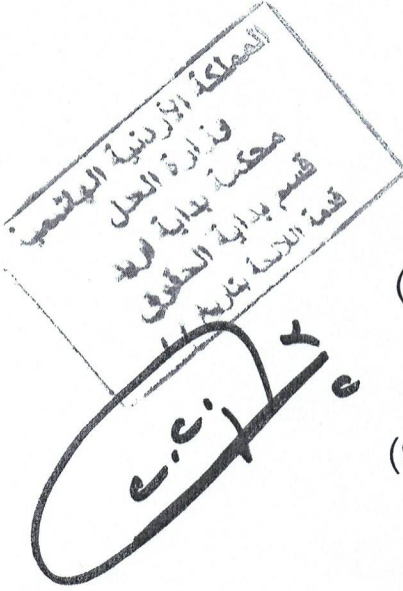 المملكة الأردنية الهاشمية
وزارة العدل
محكمة بداية اربد
قسم بداية الحقوق
قدمة اللائحة بتاريخ
(
(